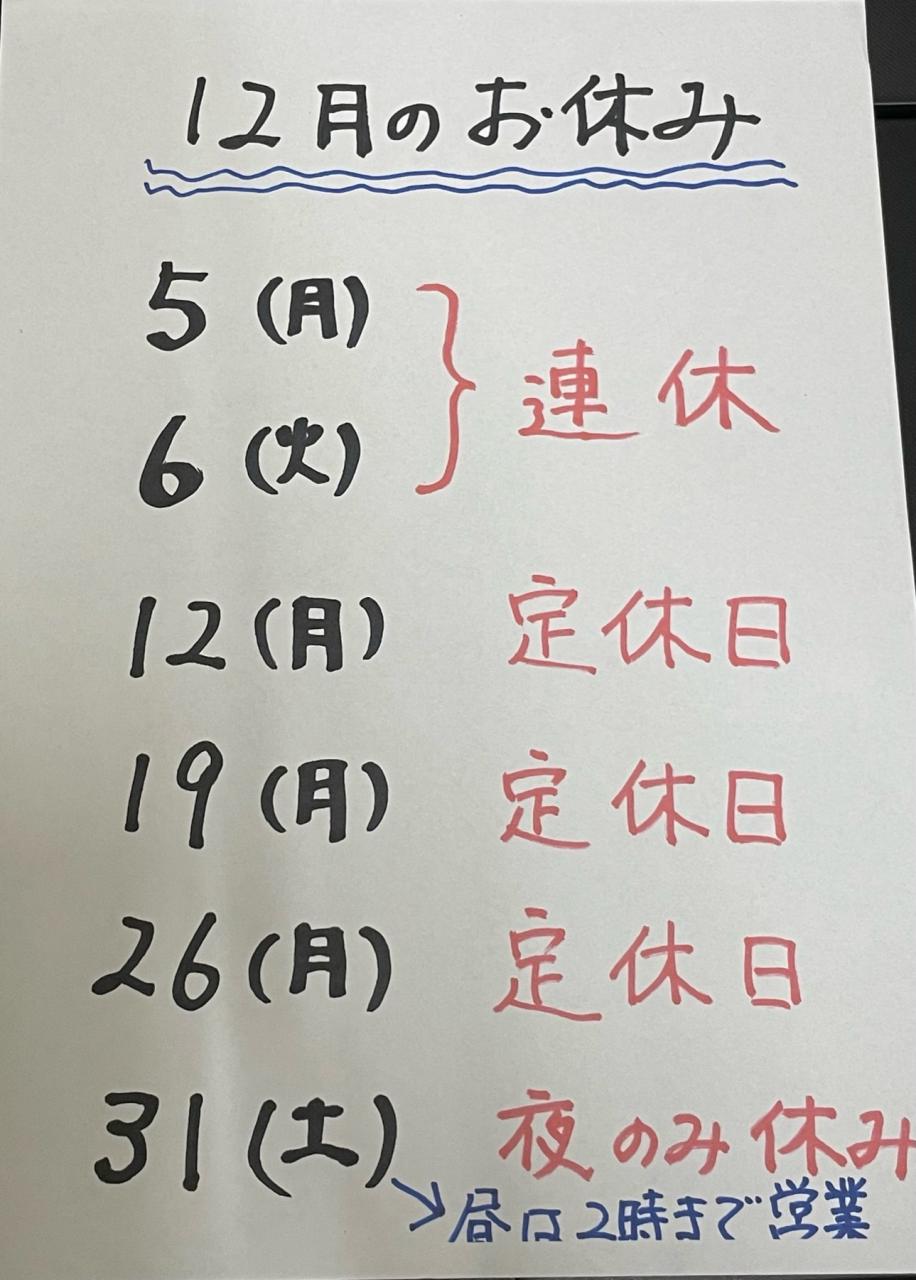 12月のお休み
5(月)
連休
6(火)
12(月) 定休日
19(月) 定休日
26(月) 定休日
31(土) 夜のみ休み
昼は2時まで営業